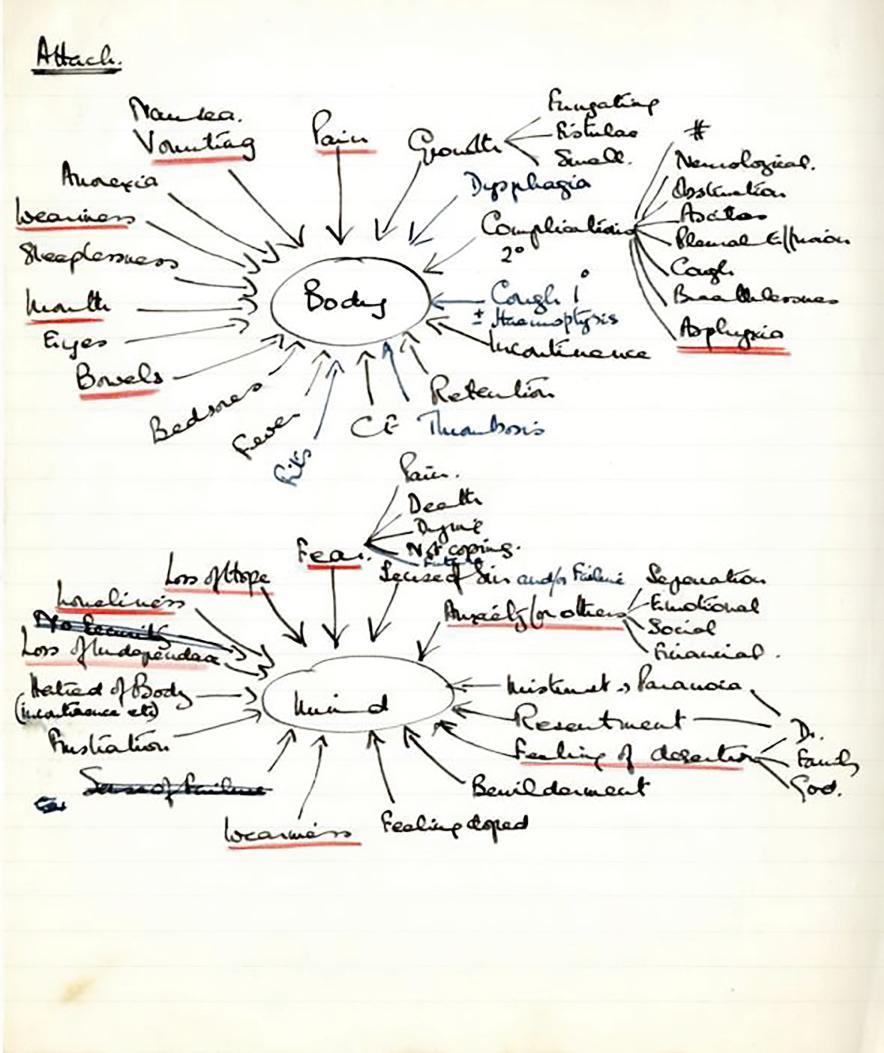 Attach.
Nausea.
Vomiting
Pain
Growth
Fungating
Fistulae
Smell.
Anorexia
Dysphagia
#
Neurological.
Obstruction
Ascites
Pleural Effusion
Cough
Breathlessness
Asphyxia
Weariness
Complications
2°
Sleeplessness
Mouth
Body
Cough
± Haemoptysis
Eyes
Incontinence
Bowels
Bedsores
Fever
Fits
CF
Thrombosis
Retention
Pain.
Death
Dying
Not coping.
Future
Fear.
Loss of Hope
Sense of Sin and/or Failure
Loneliness
Anxiety for others
Separation
Emotional
Social
Financial.
No Security
Loss of Independence
Hatred of Body
(incontinence etc)
Mind
Mistrust → Paranoia
Resentment
Dr.
Frustration
Feeling of desertion
Family
God.
Sense of Failure
Bewilderment
Weariness
Feeling doped